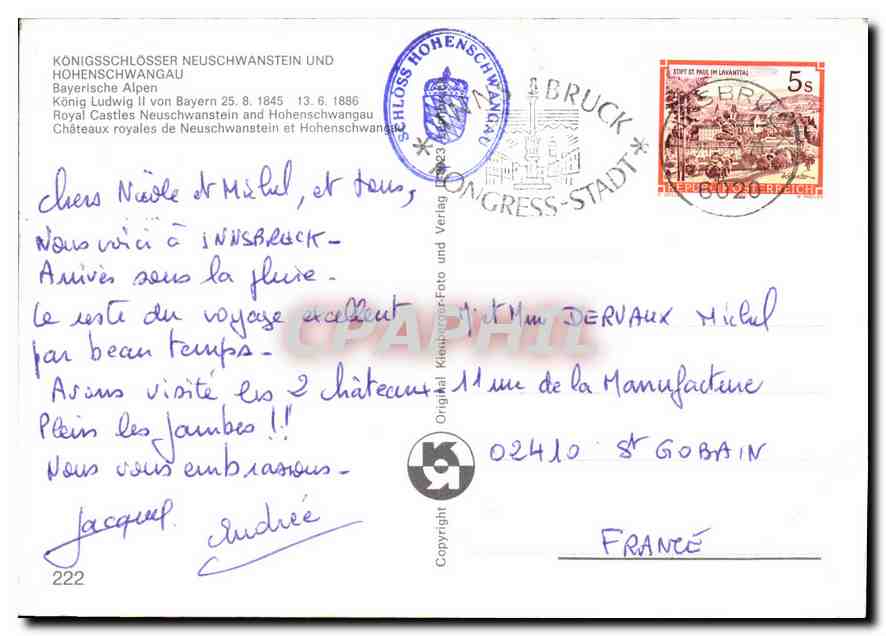 KÖNIGSSCHLÖSSER NEUSCHWANSTEIN UND
HOHENSCHWANGAU
Bayerische Alpen
König Ludwig II von Bayern 25. 8. 1845 13. 6. 1886
Royal Castles Neuschwanstein and Hohenschwangau
Châteaux royales de Neuschwanstein et Hohenschwangau
SCHLOSS HOHENSCHWANGAU
INNSBRUCK
* KONGRESS-STADT *
STIFT ST. PAUL IM LAVANTTAL
5s
REPUBLIK ÖSTERREICH
INNSBRUCK
6020
Chers Nicole et Michel, et tous,
Nous voici à INNSBRUCK -
Arrivés sous la pluie -
Le reste du voyage excellent
par beau temps -
Avons visité les 2 châteaux -
Plein les jambes !!
Nous vous embrassons -
Jacques
Andrée
222
Copyright Original Kienberger-Foto und Verlag
CPAPHIL
M et Mme DERVAUX Michel
11 rue de la Manufacture
02410 St GOBAIN
FRANCE